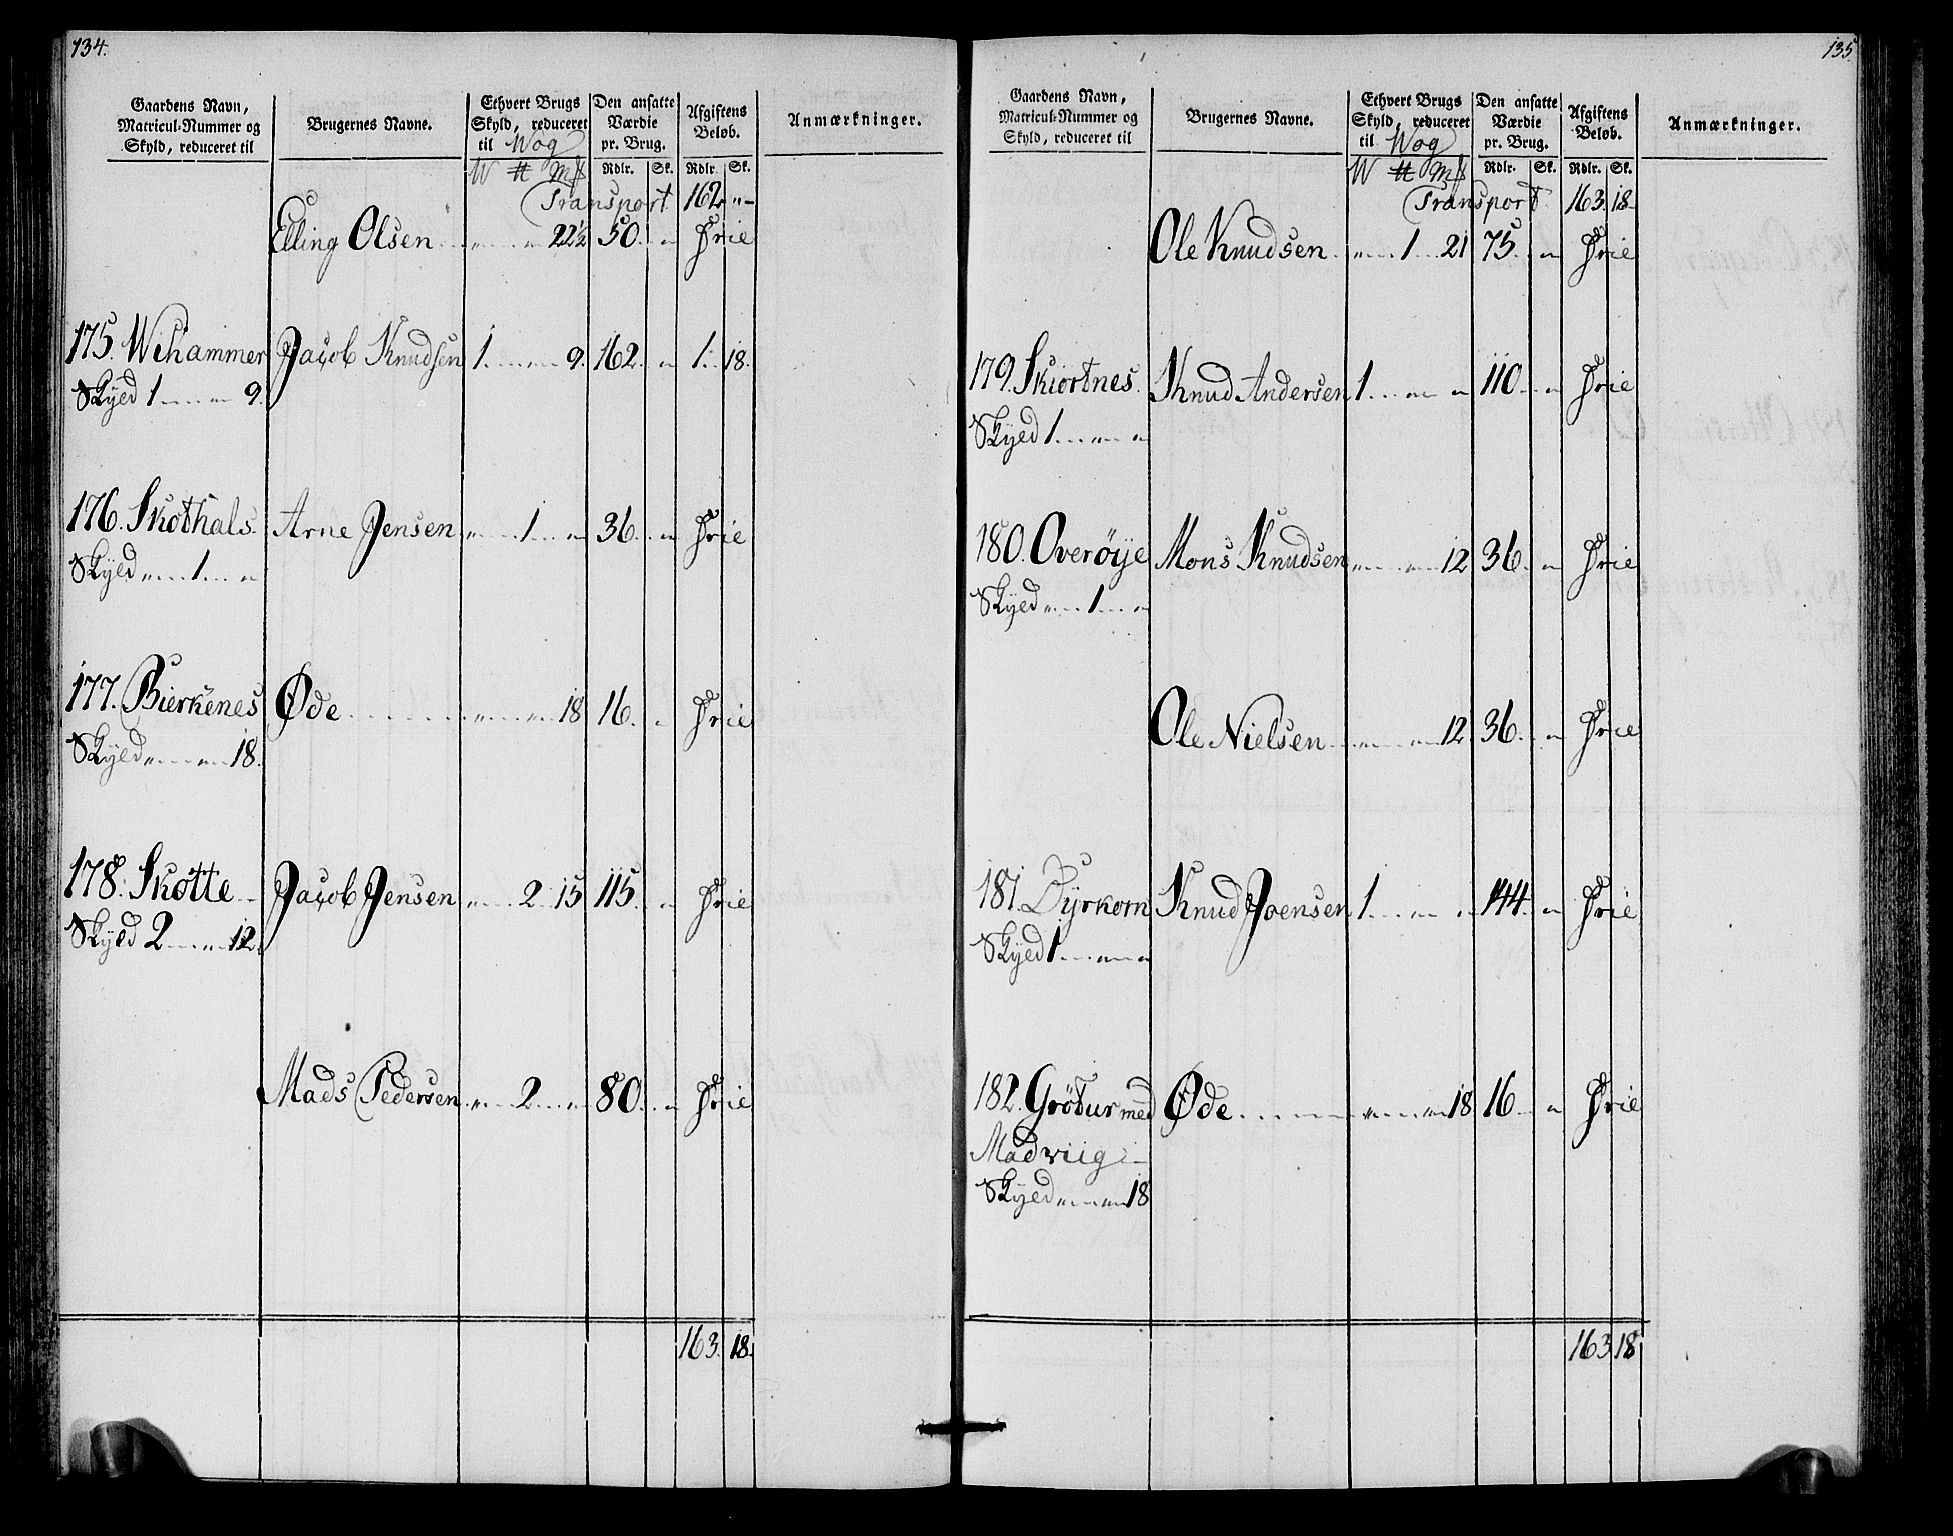 134.
Gaardens Navn, Matricul-Nummer og Skyld, reduceret til | Brugernes Navne. | Ethvert Brugs Skyld, reduceret til Wog | Den ansatte Værdie pr. Brug. | Afgiftens Beløb. | Anmærkninger.
W ℔ Mk | Rdlr. Sk. | Rdlr. Sk.
Transport 162 " -
Elling Olsen " " 22½ 50 " Frie
175. Wihammer Jacob Knudsen 1 " 9. 162 " 1. 18.
Skyld 1 " 9.
176. Skothals Arne Jensen " 1 " 36 " Frie
Skyld " 1 "
177. Bierkenes Øde " " 18 16 " Frie
Skyld " " 18.
178. Skotte Jacob Jensen " 2 15 115 " Frie
Skyld 2 " 12.
Mads Pedersen " 2 " 80 " Frie
163. 18.
135.
Gaardens Navn, Matricul-Nummer og Skyld, reduceret til | Brugernes Navne. | Ethvert Brugs Skyld, reduceret til Wog | Den ansatte Værdie pr. Brug. | Afgiftens Beløb. | Anmærkninger.
W ℔ Mk | Rdlr. Sk. | Rdlr. Sk.
Transport 163 18
Ole Knudsen " 1 21 75 " Frie
179. Skiortnes Knud Andersen 1 " " 110 " Frie
Skyld 1 " "
180. Overøye Mons Knudsen " " 12 36 " Frie
Skyld " 1 "
Ole Nielsen " " 12 36 " Frie
181. Dyrkorn Knud Joensen 1 " " 144 " Frie
Skyld 1 " "
182. Grøtur med Øde " " 18 16 " Frie
Madviig
Skyld " " 18
163 18